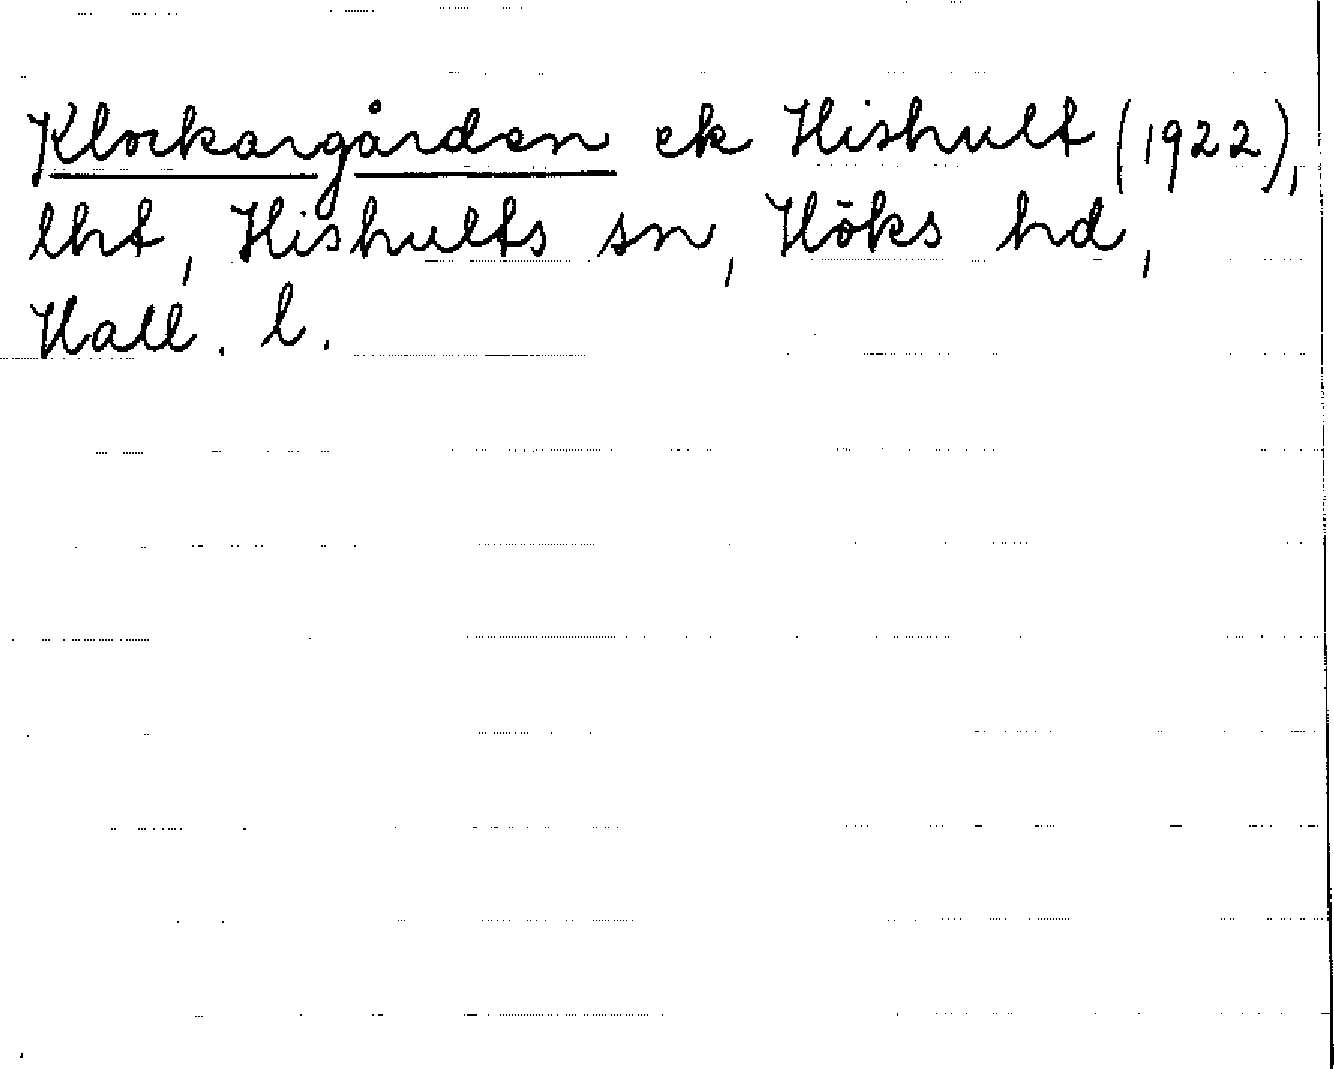 Klockargården ek Hishult (1922),
lht, Hishults sn, Höks hd,
Hall. l.